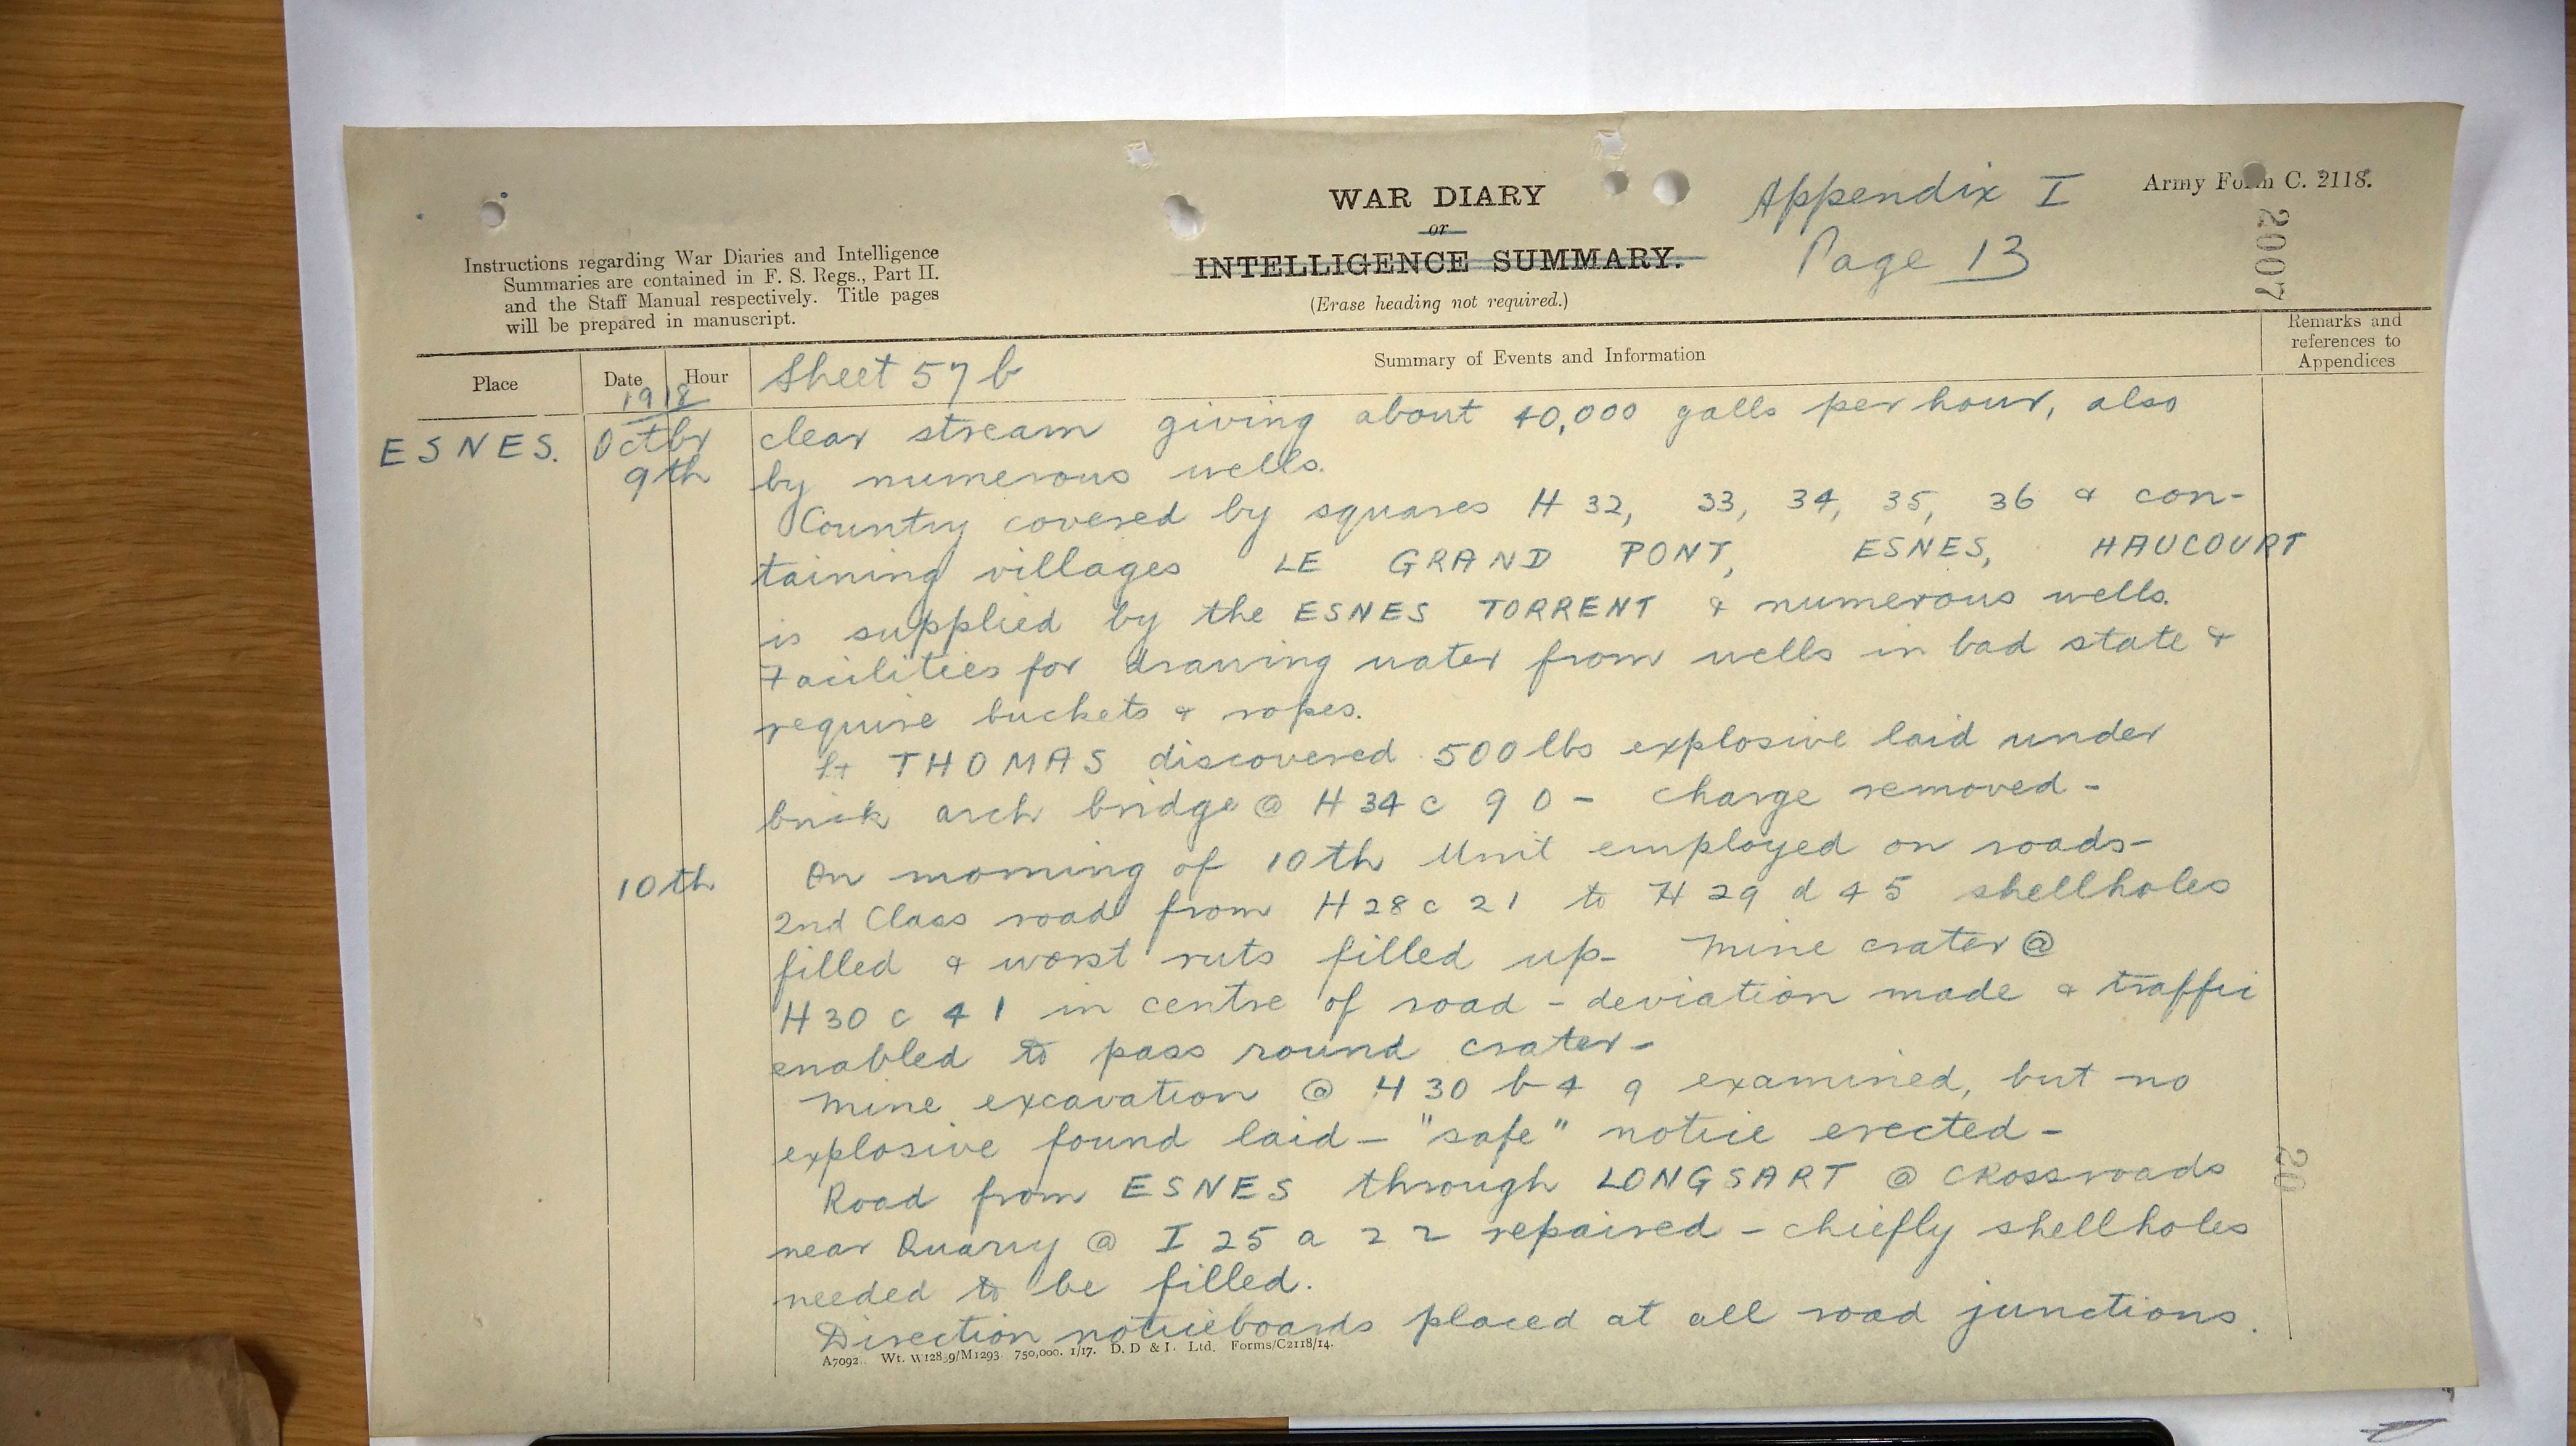 WAR DIARY
or
INTELLIGENCE SUMMARY.
(Erase heading not required.)
Appendix I
Page 13
Army Form C. 2118.
2007
Instructions regarding War Diaries and Intelligence
Summaries are contained in F. S. Regs., Part II.
and the Staff Manual respectively. Title pages
will be prepared in manuscript.
Place
Date
Hour
Summary of Events and Information
Remarks and
references to
Appendices
Sheet 57 b
1918
ESNES.
Octbr
9th
clear stream giving about 40,000 galls per hour, also
by numerous wells.
Country covered by squares H 32, 33, 34, 35, 36 & con-
taining villages LE GRAND PONT, ESNES, HAUCOURT
is supplied by the ESNES TORRENT & numerous wells.
Facilities for drawing water from wells in bad state &
require buckets & ropes.
Lt THOMAS discovered 500 lbs explosive laid under
brick arch bridge @ H 34 c 9 0 - charge removed -
10th
On morning of 10th Unit employed on roads -
2nd Class road from H 28 c 21 to H 29 d 4 5 shellholes
filled & worst ruts filled up - Mine crater @
H 30 c 4 1 in centre of road - deviation made & traffic
enabled to pass round crater -
Mine excavation @ H 30 b 4 9 examined, but no
explosive found laid - "safe" notice erected -
Road from ESNES through LONGSART @ CRossroads
near Quarry @ I 25 a 2 2 repaired - chiefly shellholes
needed to be filled.
Direction noticeboards placed at all road junctions.
20
A7092. Wt. W1289/M1293 750,000. 1/17. D. D & L. Ltd. Forms/C2118/14.